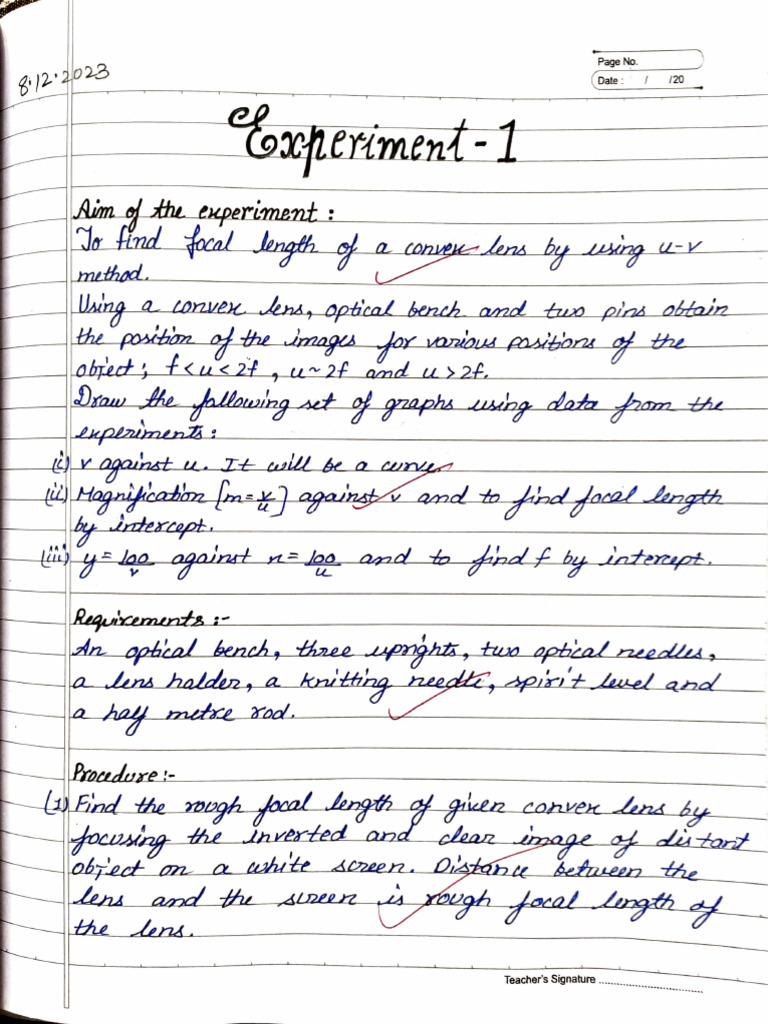 8.12.2023
Page No.
Date : / /20
Experiment - 1
Aim of the experiment :
To find focal length of a convex lens by using u-v
method.
Using a convex lens, optical bench and two pins obtain
the position of the images for various positions of the
object; f<u<2f , u~2f and u>2f.
Draw the following set of graphs using data from the
experiments:
(i) v against u. It will be a curve.
(ii) Magnification [m=v/u] against v and to find focal length
by intercept.
(iii) y = 100/v against x = 100/u and to find f by intercept.
Requirements :-
An optical bench, three uprights, two optical needles,
a lens holder, a knitting needle, spirit level and
a half metre rod.
Procedure :-
(1) Find the rough focal length of given convex lens by
focusing the inverted and clear image of distant
object on a white screen. Distance between the
lens and the screen is rough focal length of
the lens.
Teacher's Signature ..............................